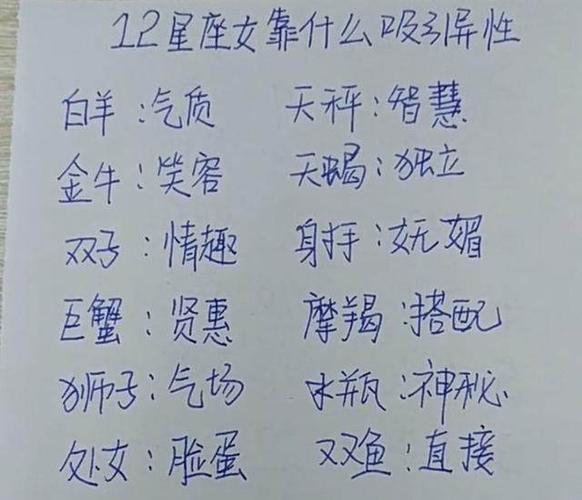 12星座女靠什么吸引异性
白羊:气质 天秤:智慧
金牛:笑容 天蝎:独立
双子:情趣 身手:妩媚
巨蟹:贤惠 摩羯:搭配
狮子:气场 水瓶:神秘
处女:脸蛋 双鱼:直接